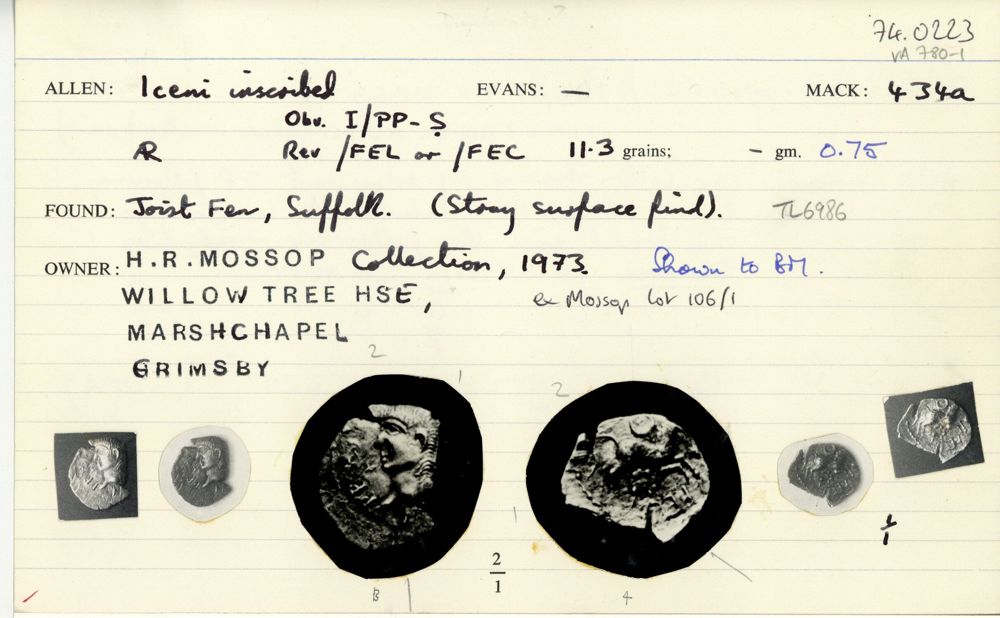 74.0223
VA 780-1
ALLEN: Iceni inscribed EVANS: — MACK: 434a
Obv. I/PP-S
AR Rev /FEL or /FEC 11.3 grains; – gm. 0.75
FOUND: Joist Fen, Suffolk. (Stray surface find). TL6986
OWNER: H.R.MOSSOP Collection, 1973. Shown to BM.
WILLOW TREE HSE, ex Mossop lot 106/1
MARSHCHAPEL
GRIMSBY
2
1
2
1
1/1
2/1
3
4